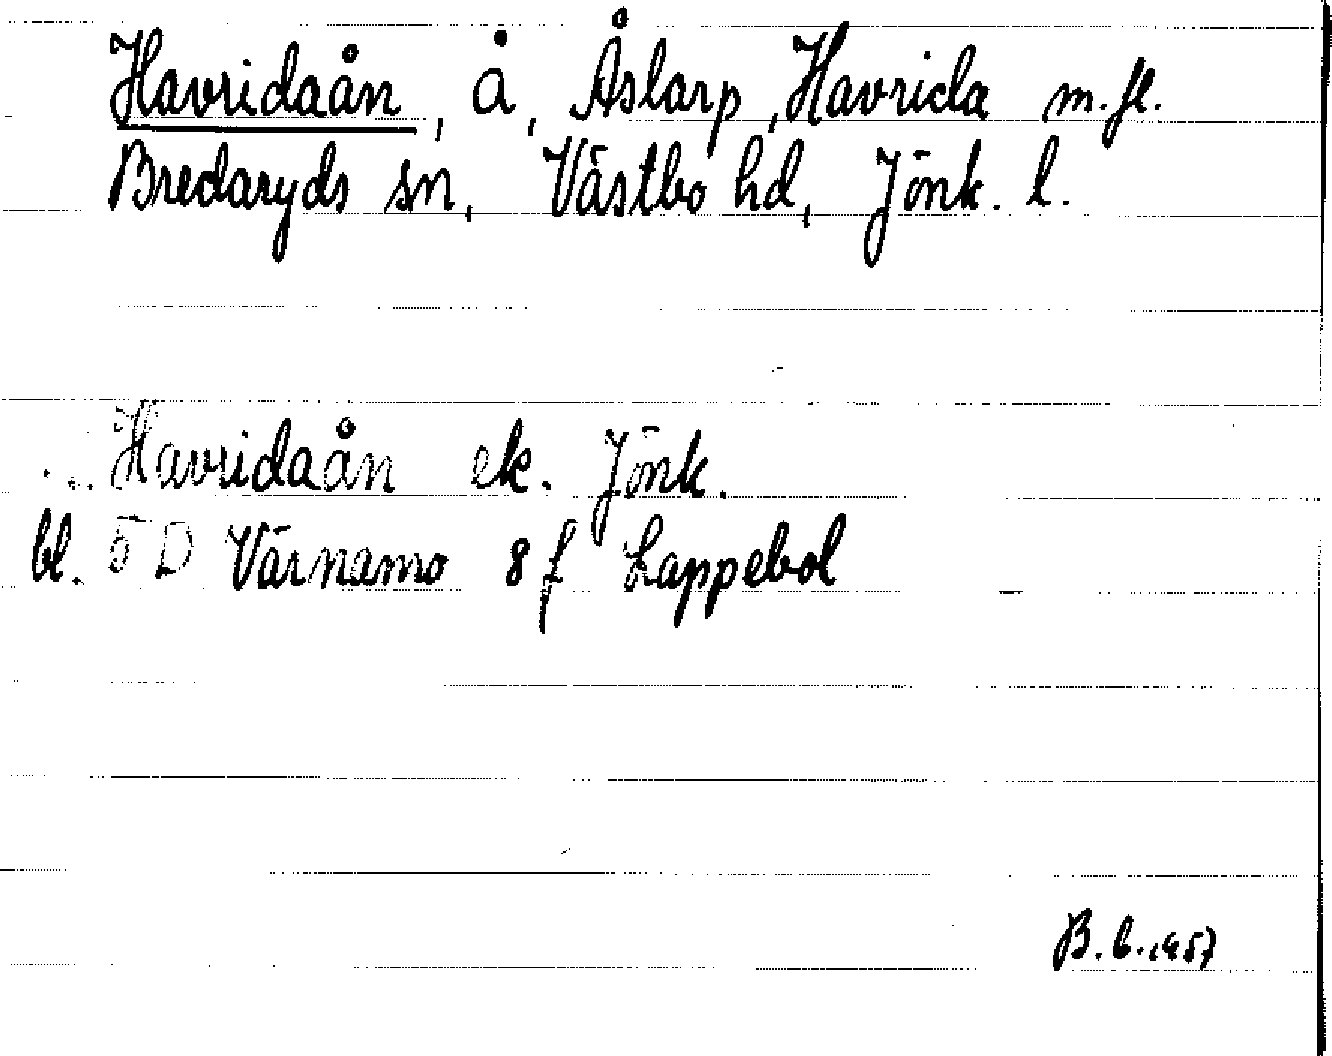 Havridaån, å, Åslarp, Havrida m.fl.
Bredaryds sn, Västbo hd, Jönk. l.
Havridaån ek. Jönk.
bl. 5D Värnamo 8f Lappebol
B.b. 1957